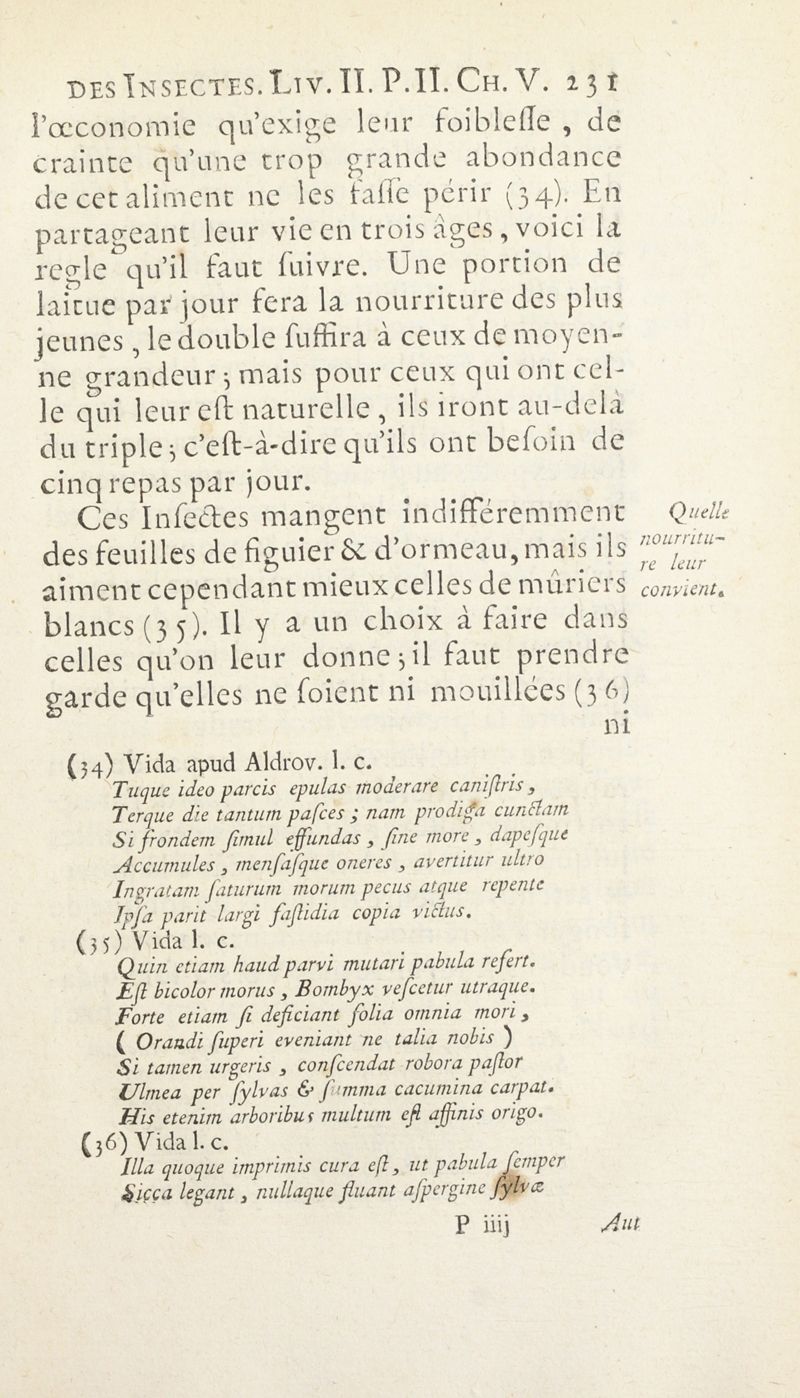 DES INSECTES. LIV. II. P. II. CH. V. 231
l'œconomie qu'exige leur foiblesſe , de
crainte qu'une trop grande abondance
de cet aliment ne les faſſe périr (34). En
partageant leur vie en trois âges, voici la
regle qu'il faut ſuivre. Une portion de
laitue par jour ſera la nourriture des plus
jeunes, le double ſuffira à ceux de moyen-
ne grandeur ; mais pour ceux qui ont cel-
le qui leur eſt naturelle, ils iront au-delà
du triple ; c'eſt-à-dire qu'ils ont beſoin de
cinq repas par jour.
Ces Inſectes mangent indifféremment
des feuilles de figuier & d'ormeau, mais ils
aiment cependant mieux celles de mûriers
blancs (35). Il y a un choix à faire dans
celles qu'on leur donne ; il faut prendre
garde qu'elles ne ſoient ni mouillées (36)
ni
Quelle
nourritu-
re leur
convient.
(34) Vida apud Aldrov. l. c.
Tuque ideo parcis epulas moderare caniſtris,
Terque die tantum paſces ; nam prodiga cunctam
Si frondem ſimul effundas, ſine more, dapeſque
Accumules, menſaſque oneres, avertitur ultro
Ingratam ſaturum morum pecus atque repente
Ipſa parit largi faſtidia copia victus.
(35) Vida l. c.
Quin etiam haud parvi mutari pabula refert.
Eſt bicolor morus, Bombyx veſcetur utraque.
Forte etiam ſi deficiant folia omnia mori,
( Orandi ſuperi eveniant ne talia nobis )
Si tamen urgeris, conſcendat robora paſtor
Ulmea per ſylvas & ſumma cacumina carpat.
His etenim arboribus multum eſt affinis origo.
(36) Vida l. c.
Illa quoque imprimis cura eſt, ut pabula ſemper
Sicca legant, nullaque fluant aſpergine ſylvæ
P iiij Aut